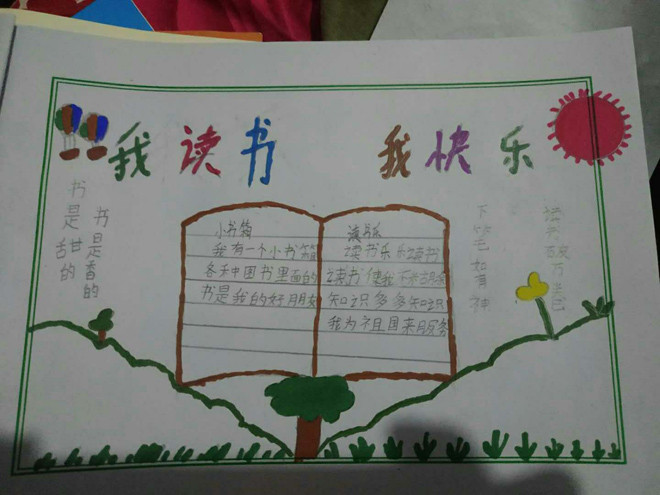 我读书 我快乐
书是香的
书是甜的
小书箱
我有一个小书箱
各种中国书里面的
书是我的好朋友
读书乐
读书乐乐读书
读书使我
知识多多知识
我为祖国来服务
读书破万卷
下笔如有神